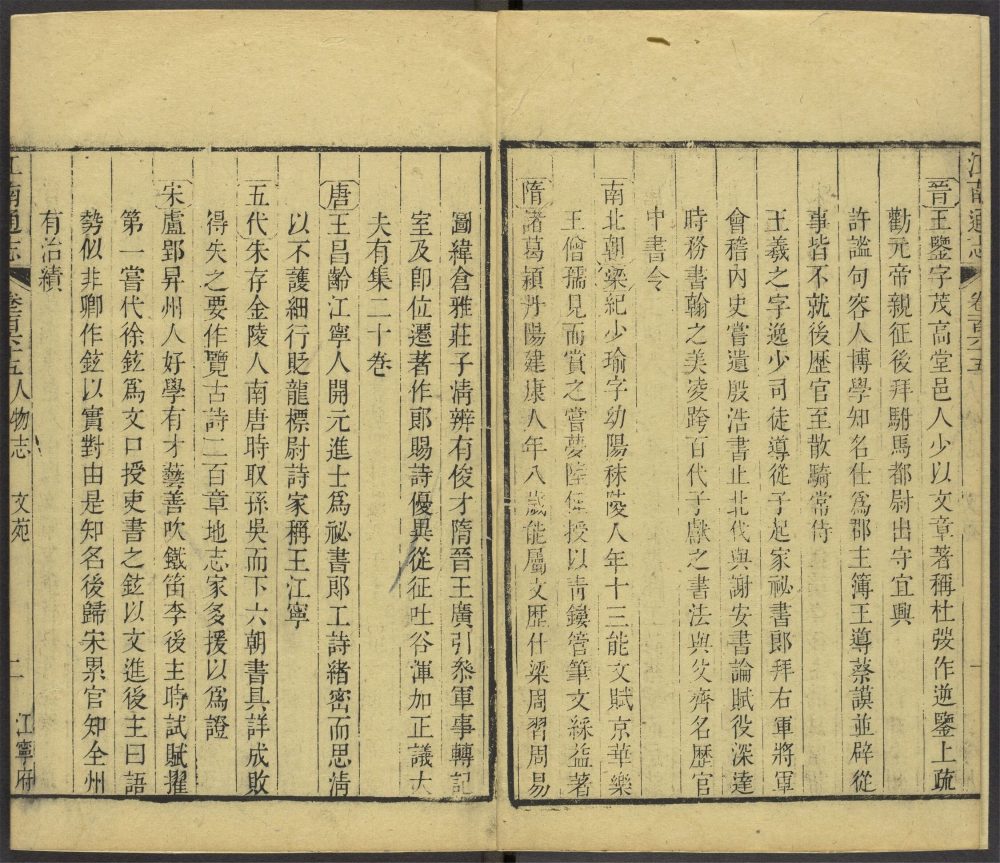 江南通志 卷一百六十五 一
晉王鑒字茂高堂邑人少以文章著稱杜弢作逆鑒上疏
勸元帝親征後拜駙馬都尉出守宜興
許謐句容人博學知名仕爲郡主簿王導蔡謨並辟從
事皆不就後歷官至散騎常侍
王羲之字逸少司徒導從子起家祕書郎拜右軍將軍
會稽內史嘗遺殷浩書止北伐與謝安書論賦役深達
時務書翰之美凌跨百代子獻之書法與父齊名歷官
中書令
南北朝梁紀少瑜字幼陽秣陵人年十三能文賦京華樂
王僧孺見而賞之嘗夢陸倕授以靑鏤管筆文綵益著
隋諸葛潁丹陽建康人年八歲能屬文歷仕梁周習周易
圖緯倉雅莊子淸辨有俊才隋晉王廣引叅軍事轉記
室及卽位遷著作郎賜詩優異從征吐谷渾加正議大
夫有集二十卷
唐王昌齡江寧人開元進士爲祕書郎工詩緒密而思淸
以不護細行貶龍標尉詩家稱王江寧
五代朱存金陵人南唐時取孫吳而下六朝書具詳成敗
得失之要作覽古詩二百章地志家多援以爲證
宋盧郢昇州人好學有才藝善吹鐵笛李後主時試賦擢
第一嘗代徐鉉爲文口授吏書之鉉以文進後主曰語
勢似非卿作鉉以實對由是知名後歸宋累官知全州
有治績
江南通志 卷一百六十五 人物志 文苑 二 江寧府